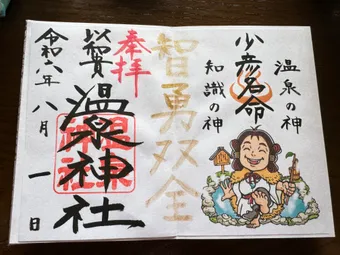 温泉の神
少彦名命
知識の神
智勇双全
奉拝
温泉神社
令和六年八月一日